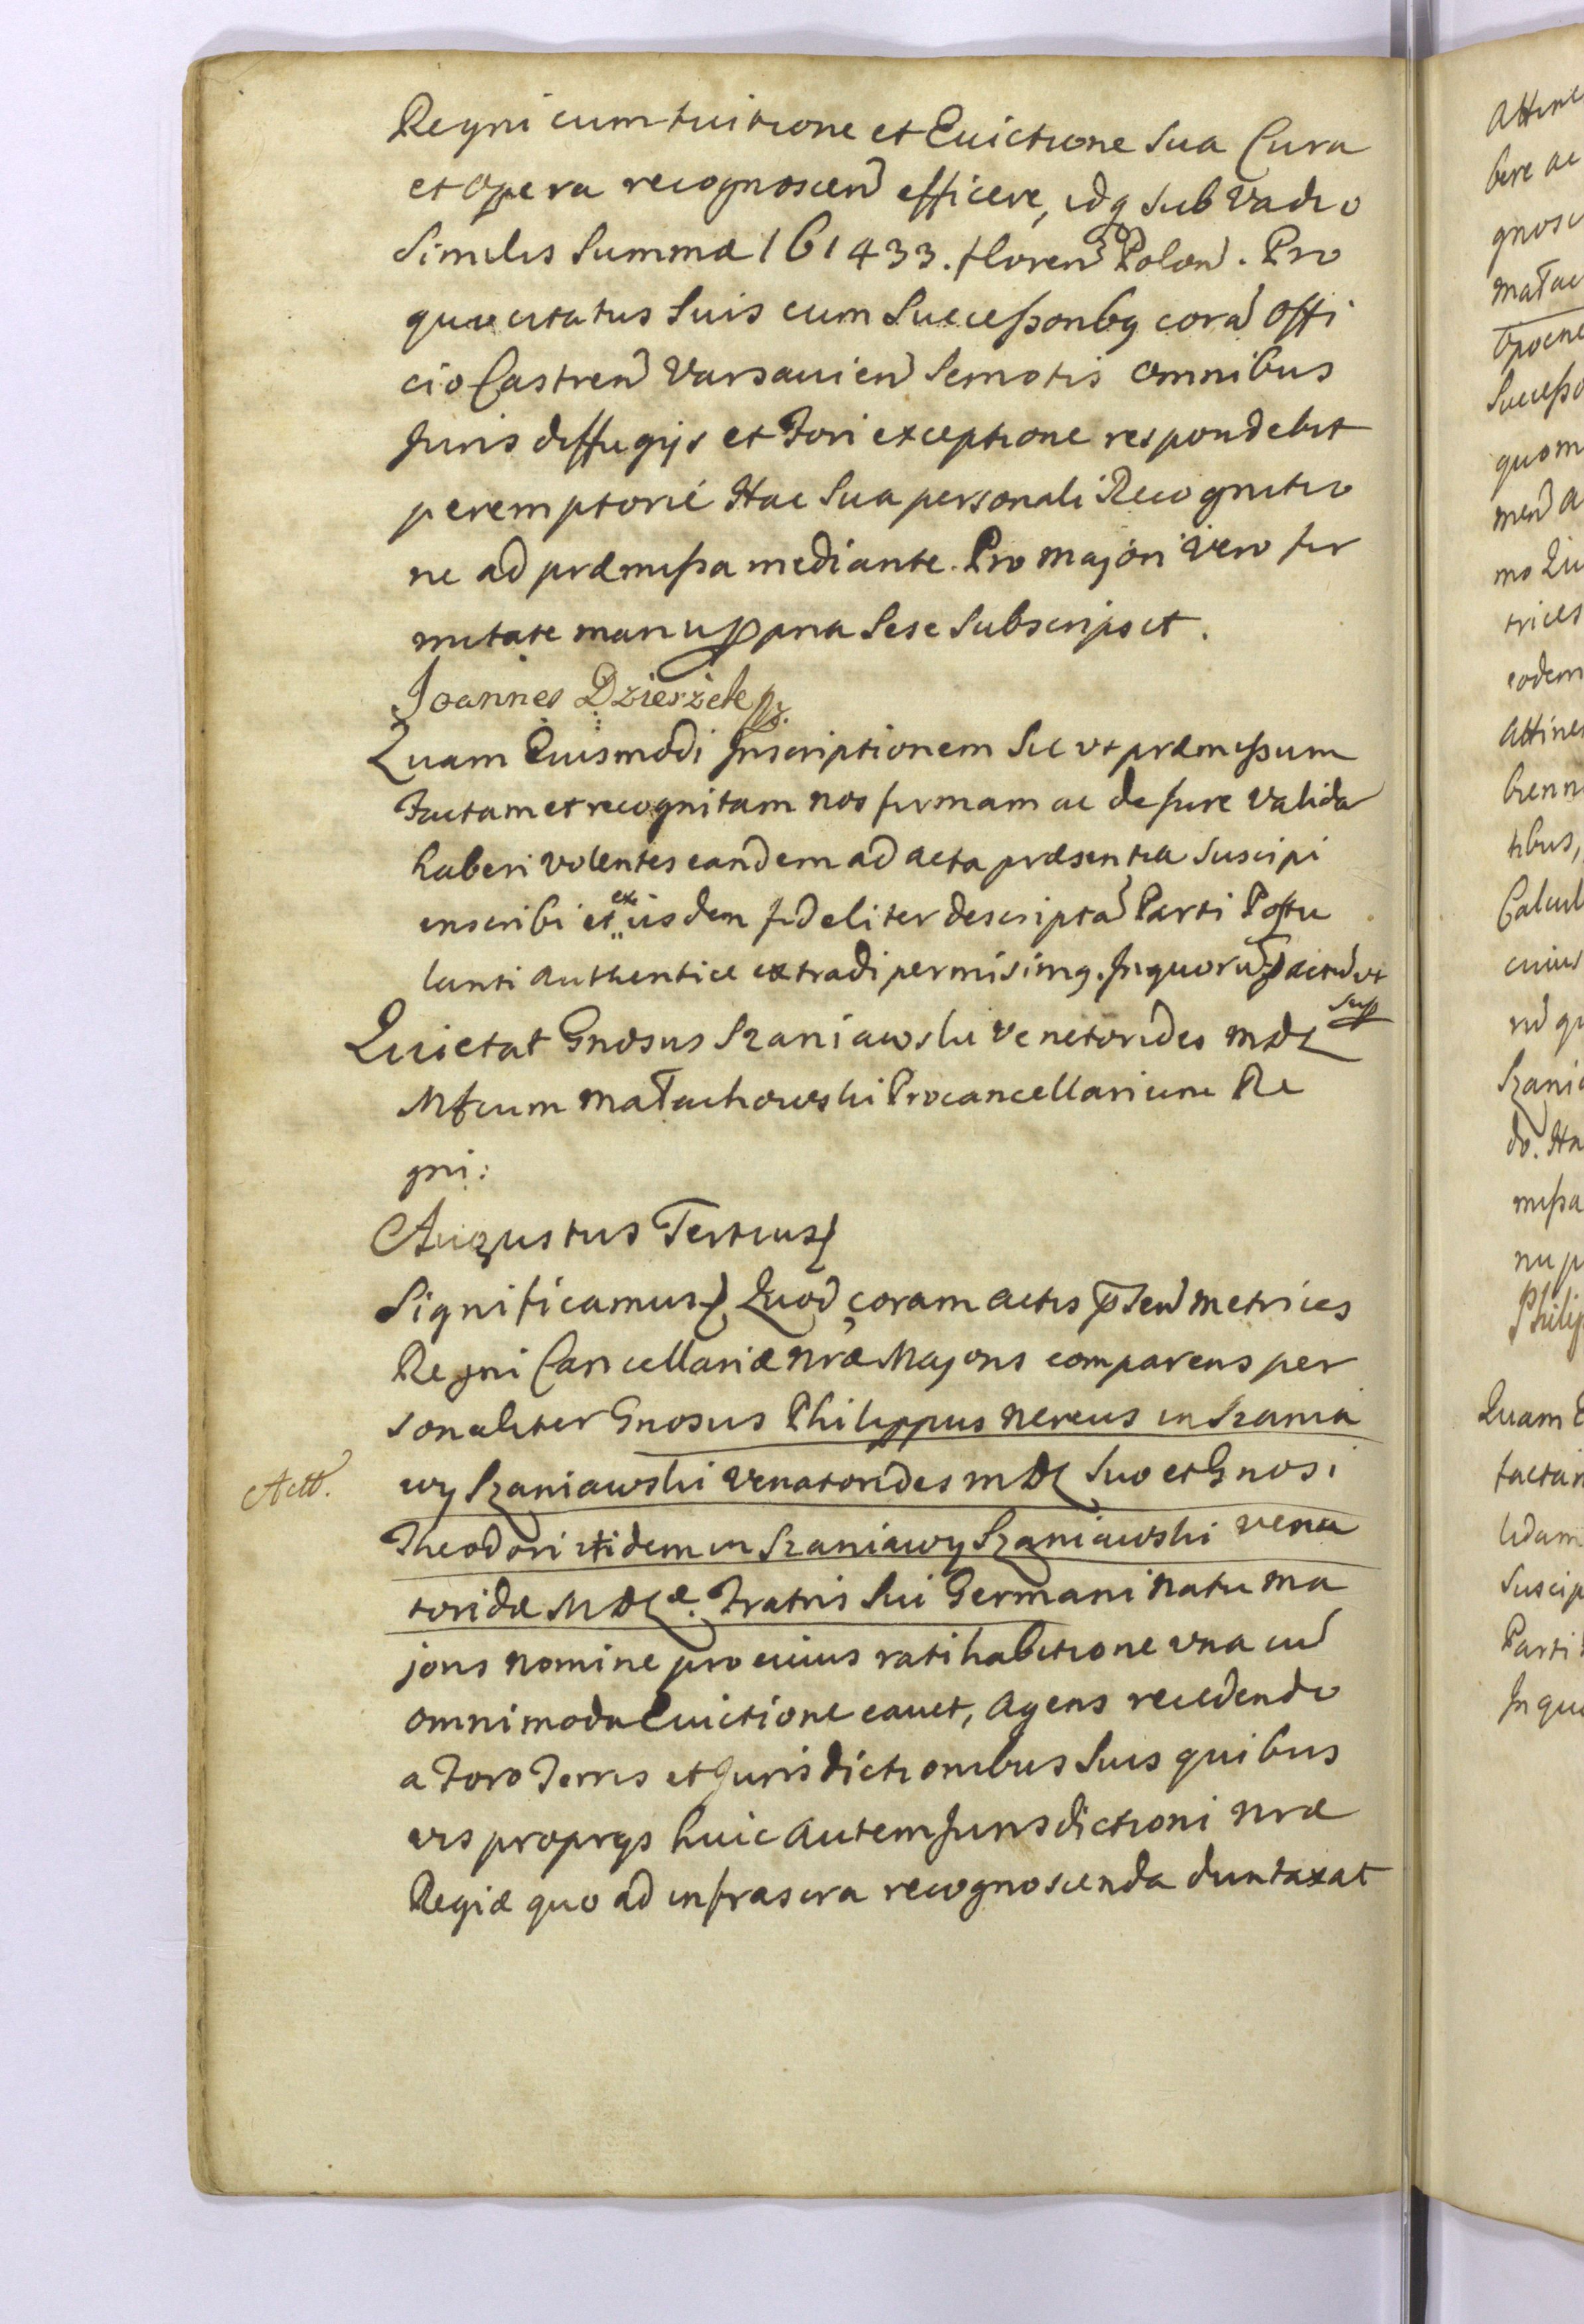 Regni cum tuitione et Evictione Sua Cura
et Opera recognoscen efficere, idq sub Vadio
Similis Summæ 161433. floren Polon. Pro
quo citatus Suis cum Successonbq cora Offi
cio Castren Varsavien Semotis omnibus
Juris diffugijs et Fori exceptione respondebit
peremptorié Hac Sua personali Recognitio
ne ad præmissa mediante. Pro majori vero fir
mitate manu ppria Sese Subscripsit.
Joannes Dzierżek
Quam Eiusmodi Inscriptionem Sic vt præmissum
Factam et recognitam nos firmam ac de Jure Valida
haberi volentes eandem ad acta præsentia Suscipi
inscribi et ex iisdem fideliter descripta Parti Postu
lanti authentice extradi permisimq. In quoru actu vt
sup
Quietat Gnosus Szaniawski Venetorides
Mfcum Małachowski Procancellarium Re
gni:
Augustus Tertius
Significamus Quod coram actis psen Metrices
Regni Cancellariæ nræ Majoris comparens per
sonaliter Gnosus Philippus Nereus in Szania
wy Szaniawski Venatorides MDL Suo et Gnosi
Theodori itidem in Szaniawy Szaniawski vena
toridæ MDLæ. Fratris Sui Germani natu ma
joris nomine pro cuius ratihabitione vna cu
omnimoda Evictione cavet, agens recedendo
a Foro Terris et Jurisdictionibus Suis quibus
vis proprys huic autem Jurisdictioni nræ
Regiæ quo ad infrascra recognoscenda duntaxat
Actt.
attine
bere ac
gnosc
Małac
Opocne
Successo
quom
men a
mo Qu
trices
eodem
attine
bienn
tibus,
Calcul
cuius
Szania
do. Ha
missa
nu p
Philip
Quam E
factam
lidam
Suscip
Parti
In quo